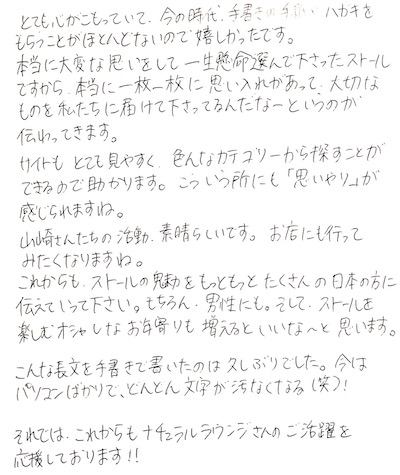 とても心がこもっていて、今の時代、手書きの手紙、ハガキを
もらうことがほとんどないので嬉しかったです。
本当に大変な思いをして一生懸命選んで下さったストール
ですから、本当に一枚一枚に思い入れがあって、大切な
ものを私たちに届けて下さってるんだな〜というのが
伝わってきます。
サイトもとても見やすく、色んなカテゴリーから探すことが
できるので助かります。こういう所にも「思いやり」が
感じられますね。
山崎さんたちの活動、素晴らしいです。お店にも行って
みたくなりますね。
これからも、ストールの魅力をもっともっとたくさんの日本の方に
伝えていって下さい。もちろん、男性にも。そして、ストールを
楽しむオシャレなお年寄りも増えるといいな〜と思います。
こんな長文を手書きで書いたのは久しぶりでした。今は
パソコンばかりで、どんどん文字が汚なくなる(笑)!
それでは、これからもナチュラルラウンジさんのご活躍を
応援しております!!